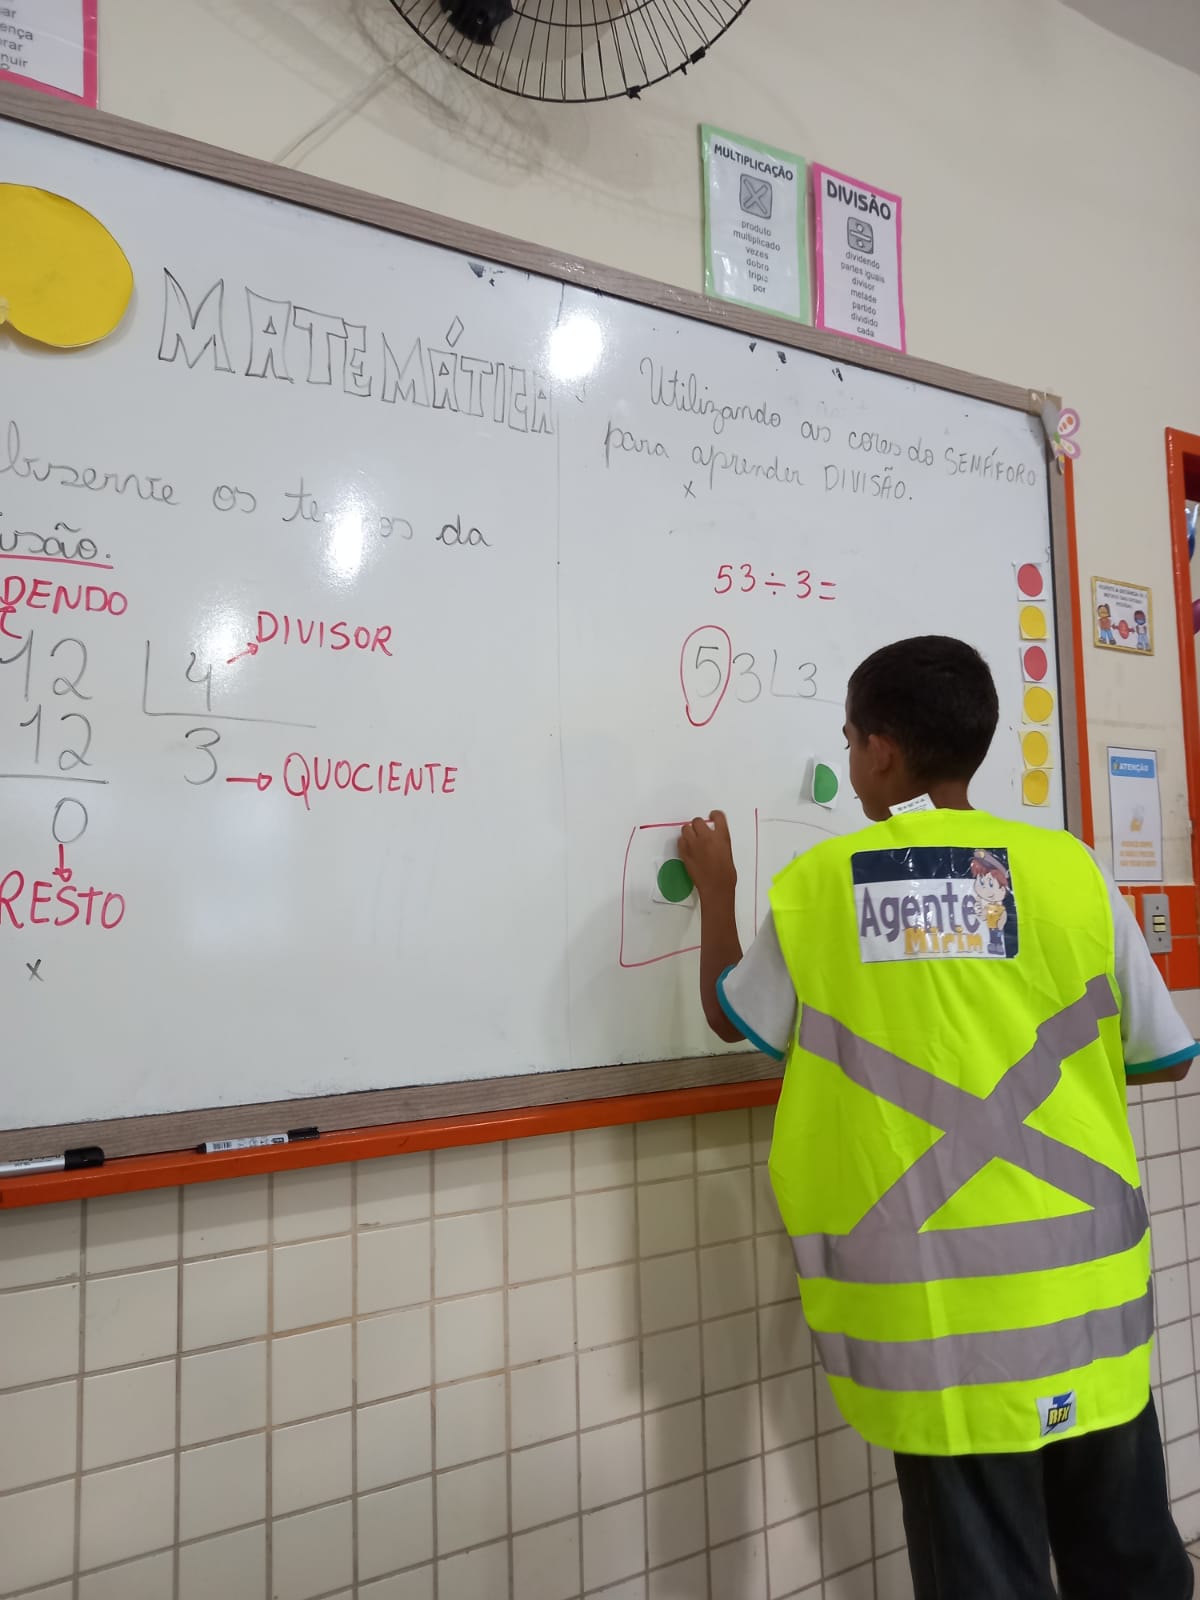 ar
ença
rar
nuir
MULTIPLICAÇÃO
produto
multiplicado
vezes
dobro
triplo
por
DIVISÃO
dividendo
partes iguais
divisor
metade
partido
dividido
cada
MATEMÁTICA
bserve os te os da
isão.
DENDO
12 4
DIVISOR
12 3
QUOCIENTE
0
RESTO
x
Utilizando as cores do SEMÁFORO
para aprender DIVISÃO.
x
53÷3=
53 3
ATENÇÃO
Agente
Mirim
RFX